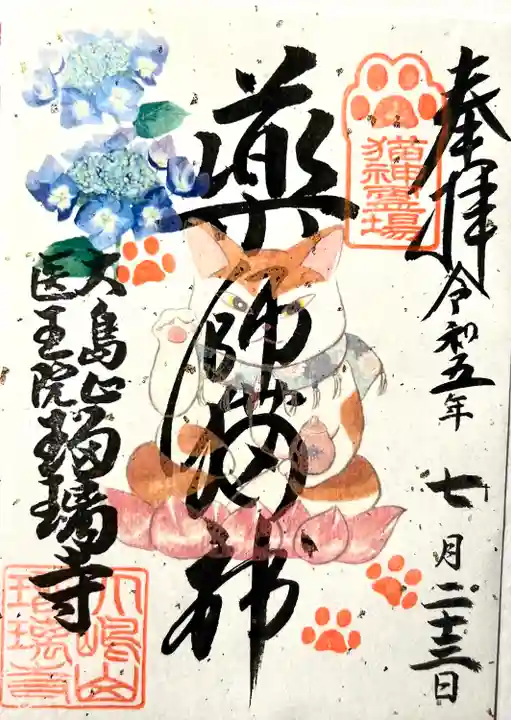 奉拝
令和五年
七月二十三日
猫神霊場
薬師猫神
大島山
医王院
瑠璃寺
大嶋山
瑠璃寺